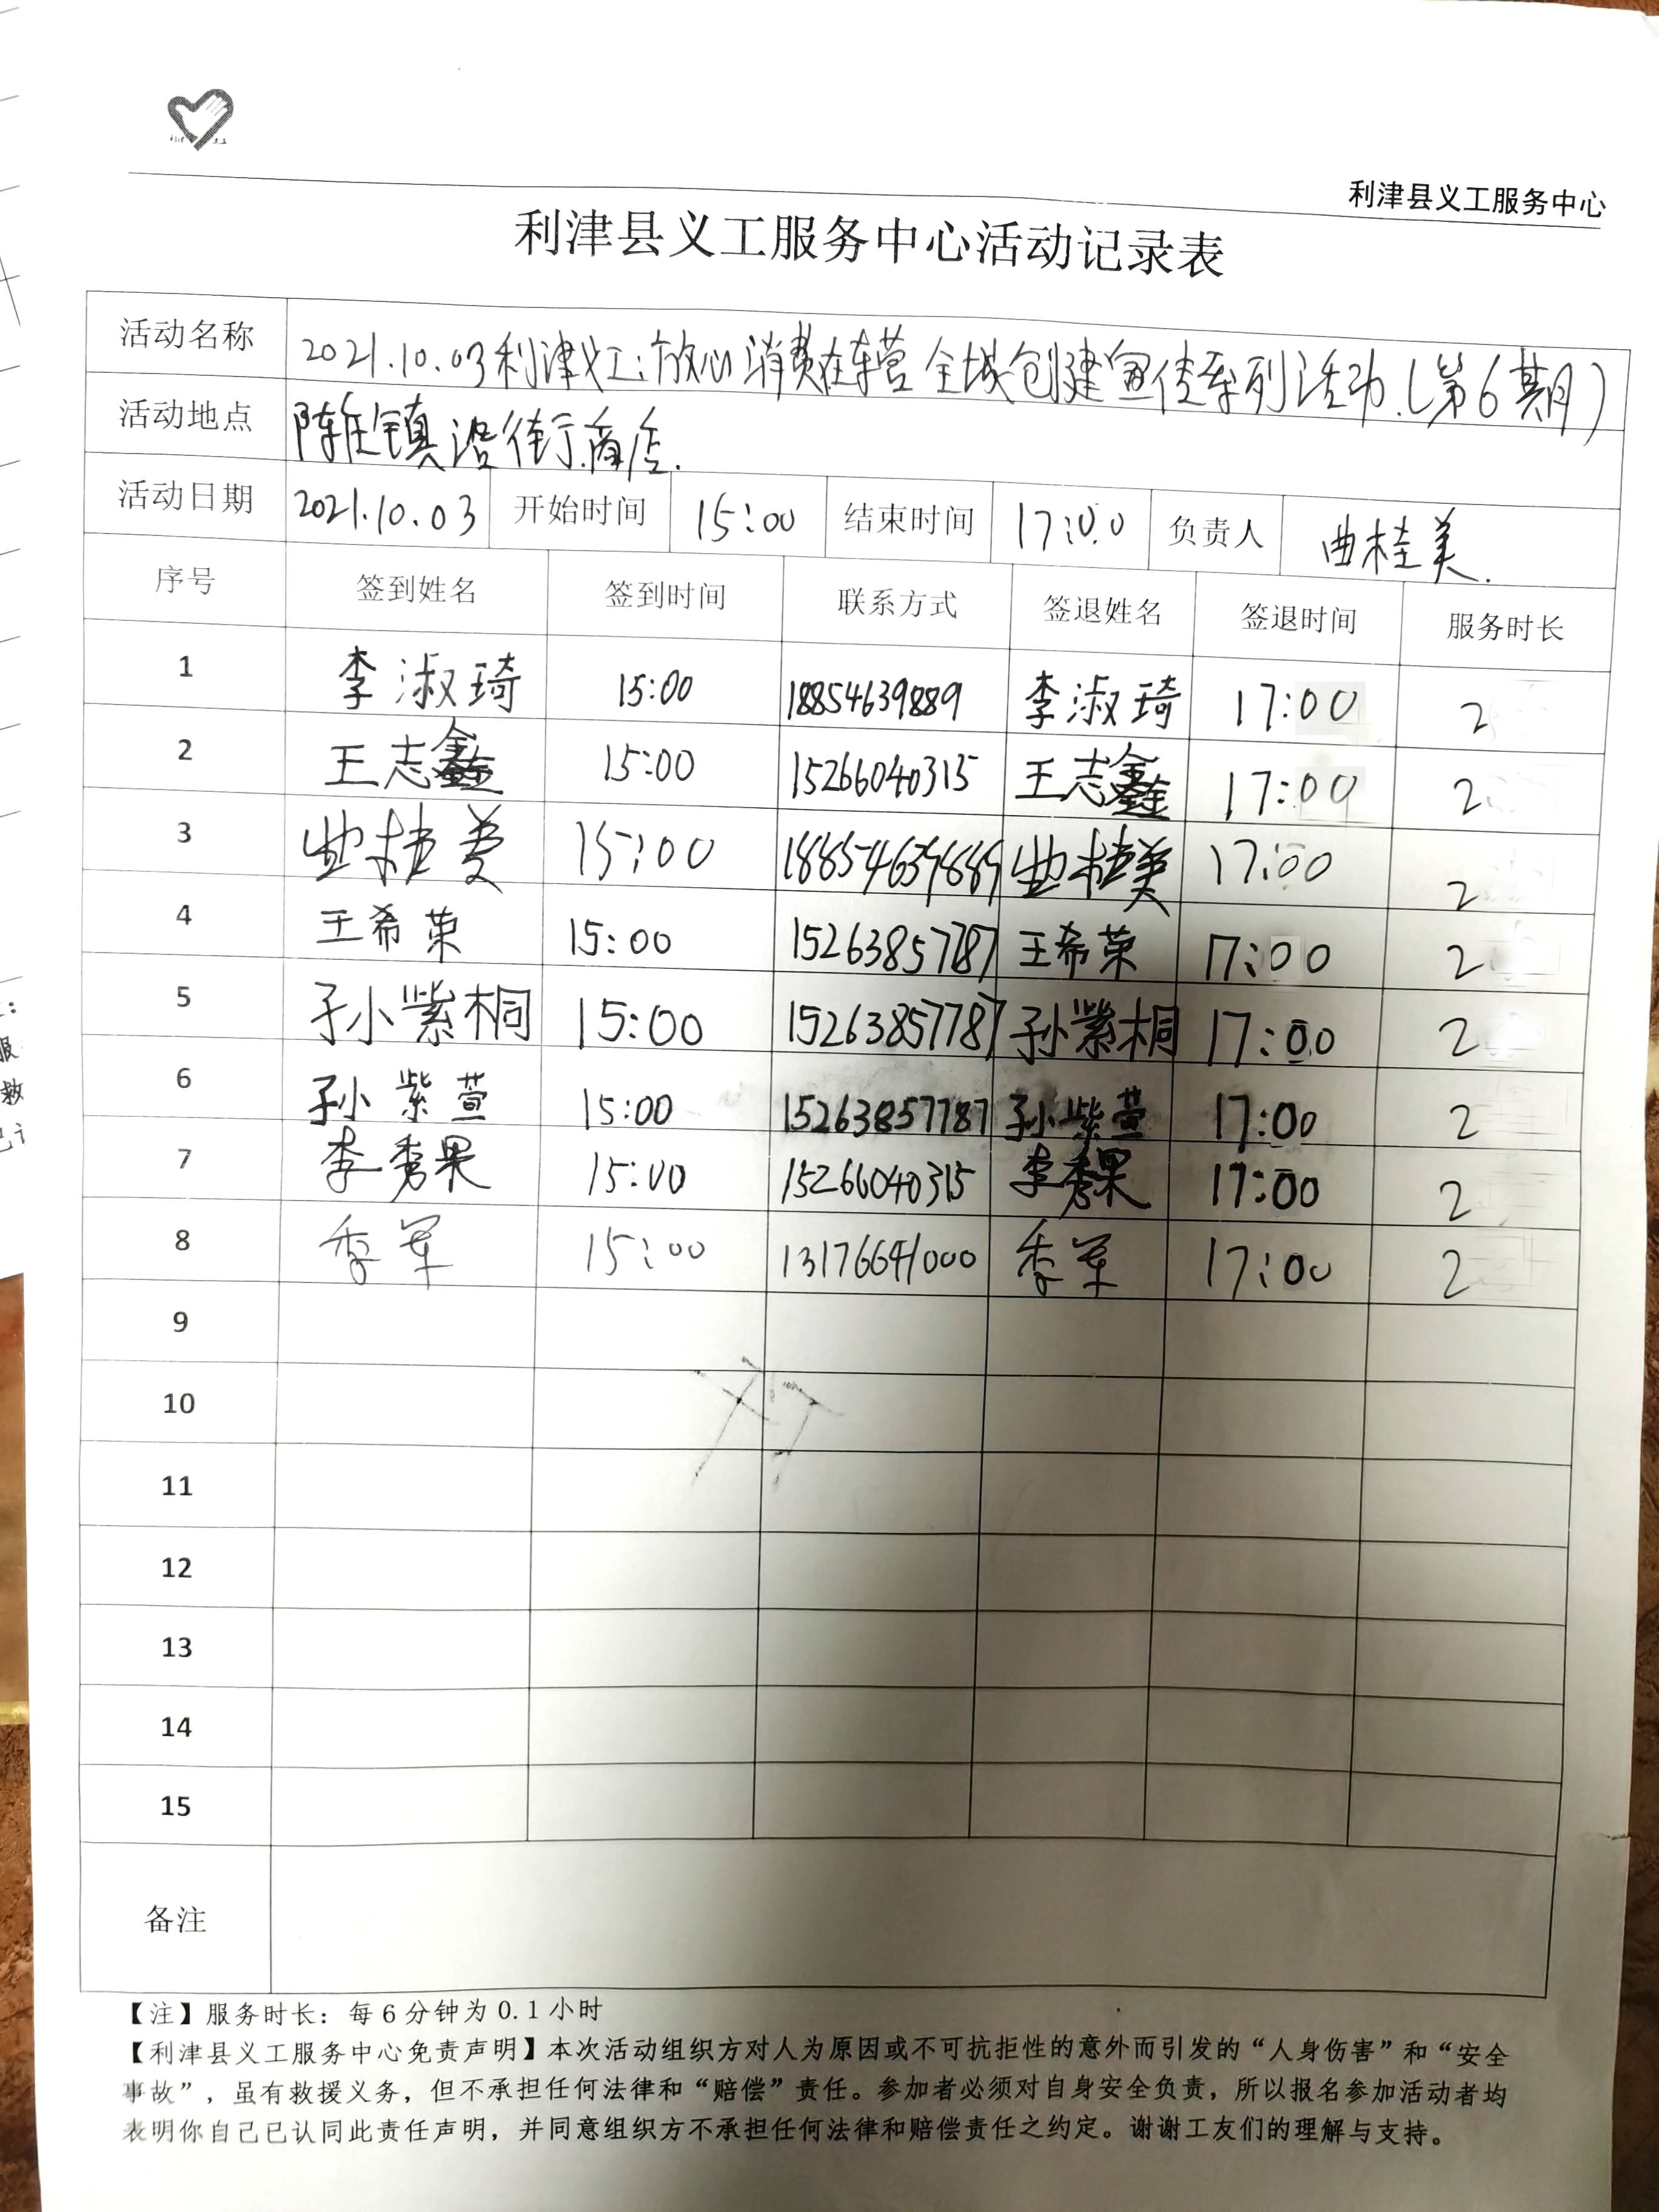 利津县义工服务中心
利津县义工服务中心活动记录表
活动名称 2021.10.03利津义工:放心消费在东营 全域创建宣传系列活动.(第6期)
活动地点 陈庄镇沿街商店.
活动日期 2021.10.03 开始时间 15:00 结束时间 17:00 负责人 曲桂美.
序号 签到姓名 签到时间 联系方式 签退姓名 签退时间 服务时长
1 李淑琦 15:00 18854639889 李淑琦 17:00 2
2 王志鑫 15:00 15266040315 王志鑫 17:00 2
3 曲桂美 15:00 18854639889 曲桂美 17:00 2
4 王希荣 15:00 15263857787 王希荣 17:00 2
5 孙紫桐 15:00 15263857787 孙紫桐 17:00 2
6 孙紫萱 15:00 15263857787 孙紫萱 17:00 2
7 李秀果 15:00 15266040315 李秀果 17:00 2
8 季军 15:00 13176641000 季军 17:00 2
9
10
11
12
13
14
15
备注
【注】服务时长：每6分钟为0.1小时
【利津县义工服务中心免责声明】本次活动组织方对人为原因或不可抗拒性的意外而引发的“人身伤害”和“安全
事故”，虽有救援义务，但不承担任何法律和“赔偿”责任。参加者必须对自身安全负责，所以报名参加活动者均
表明你自己已认同此责任声明，并同意组织方不承担任何法律和赔偿责任之约定。谢谢工友们的理解与支持。